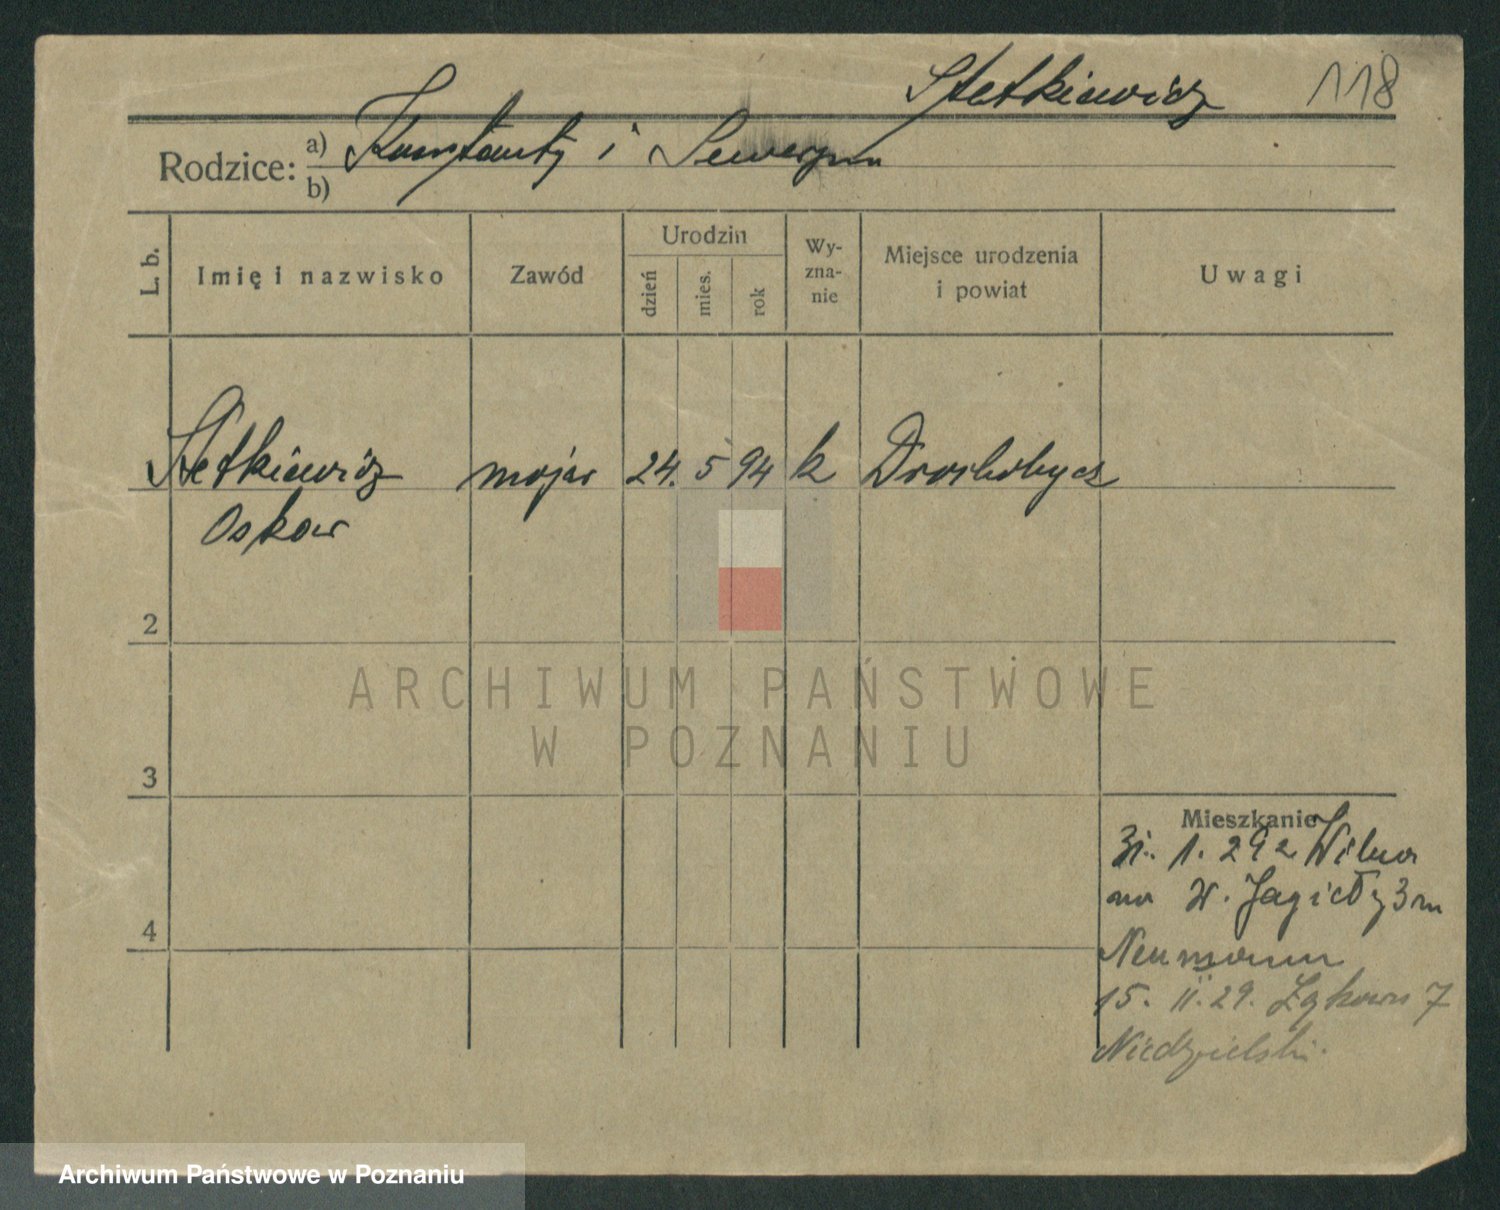 Stetkiewicz 118
Rodzice: a) Konstanty i Seweryna
b)
L. b. Imię i nazwisko Zawód Urodzin dzień mies. rok Wy-zna-nie Miejsce urodzenia i powiat Uwagi
Stetkiewicz major 24. 5 94 k Drohobycz
Oskar
2
ARCHIWUM PAŃSTWOWE
W POZNANIU
3
Mieszkanie
31. 1. 29 z Wilna
na W. Jagiełły 3 m
4
Neumann
15. II. 29. Łąkowa 7
Niedzielski.
Archiwum Państwowe w Poznaniu